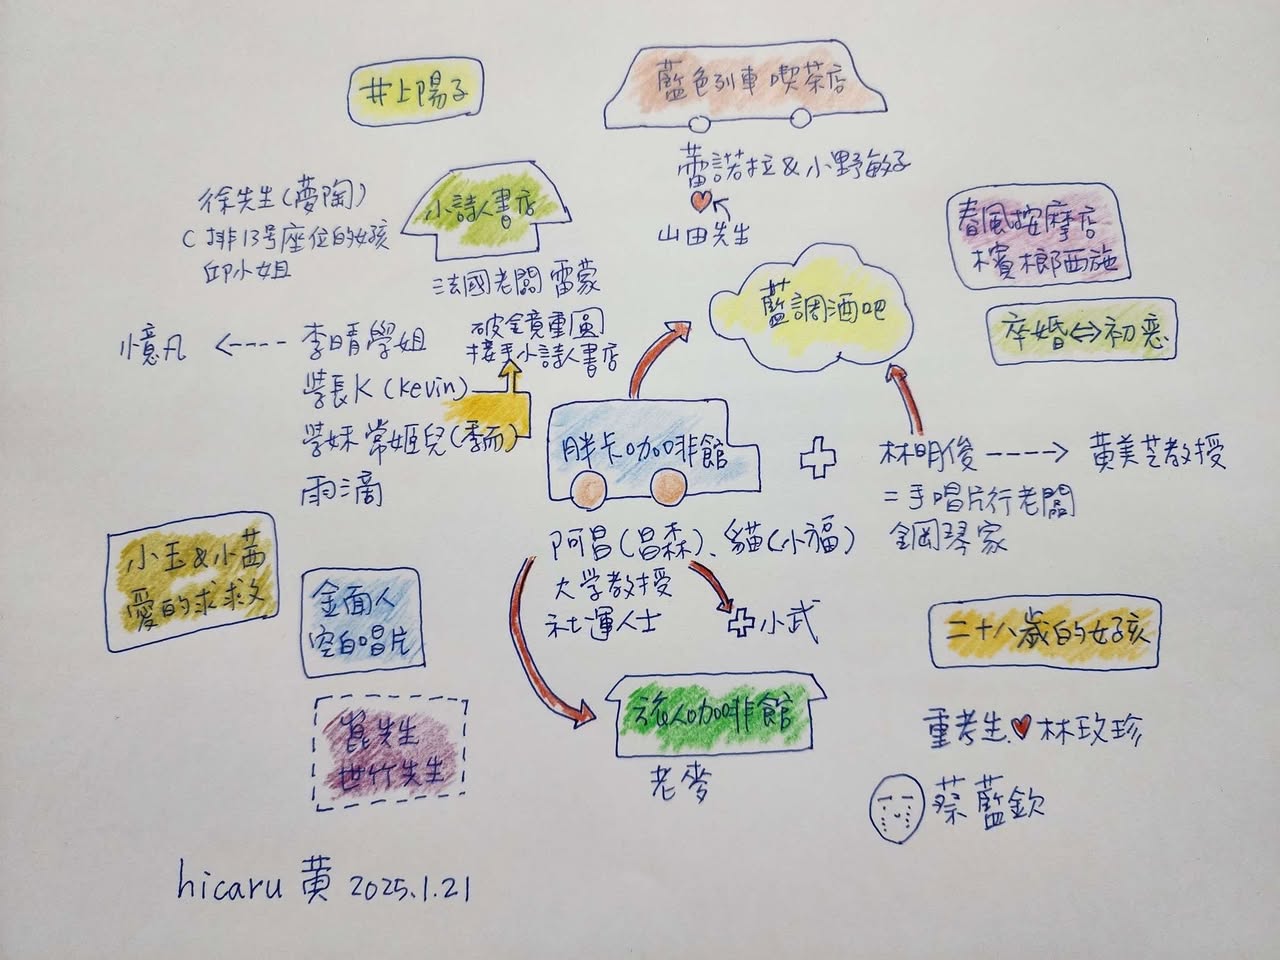 井上陽子
藍色列車 喫茶店
蕾諾拉&小野敏子
山田先生
徐先生(夢陶)
C排13号座位的女孩
邱小姐
小詩人書店
法國老闆 雷蒙
破鏡重圓
接手小詩人書店
憶凡
李晴學姐
學長K(Kevin)
學妹常姬兒(季而)
雨滴
藍調酒吧
春風按摩店
檳榔西施
卒婚⇔初恋
胖卡咖啡館
林明俊
黃美芝教授
二手唱片行老闆
鋼琴家
阿昌(昌森)、貓(小福)
大学教授
社運人士
小武
小玉&小茜
愛的求救
金面人
空白唱片
崑先生
世竹先生
旅人咖啡館
老麥
二十八歲的女孩
重考生 林玫珍
蔡藍欽
hicaru 黄 2025.1.21